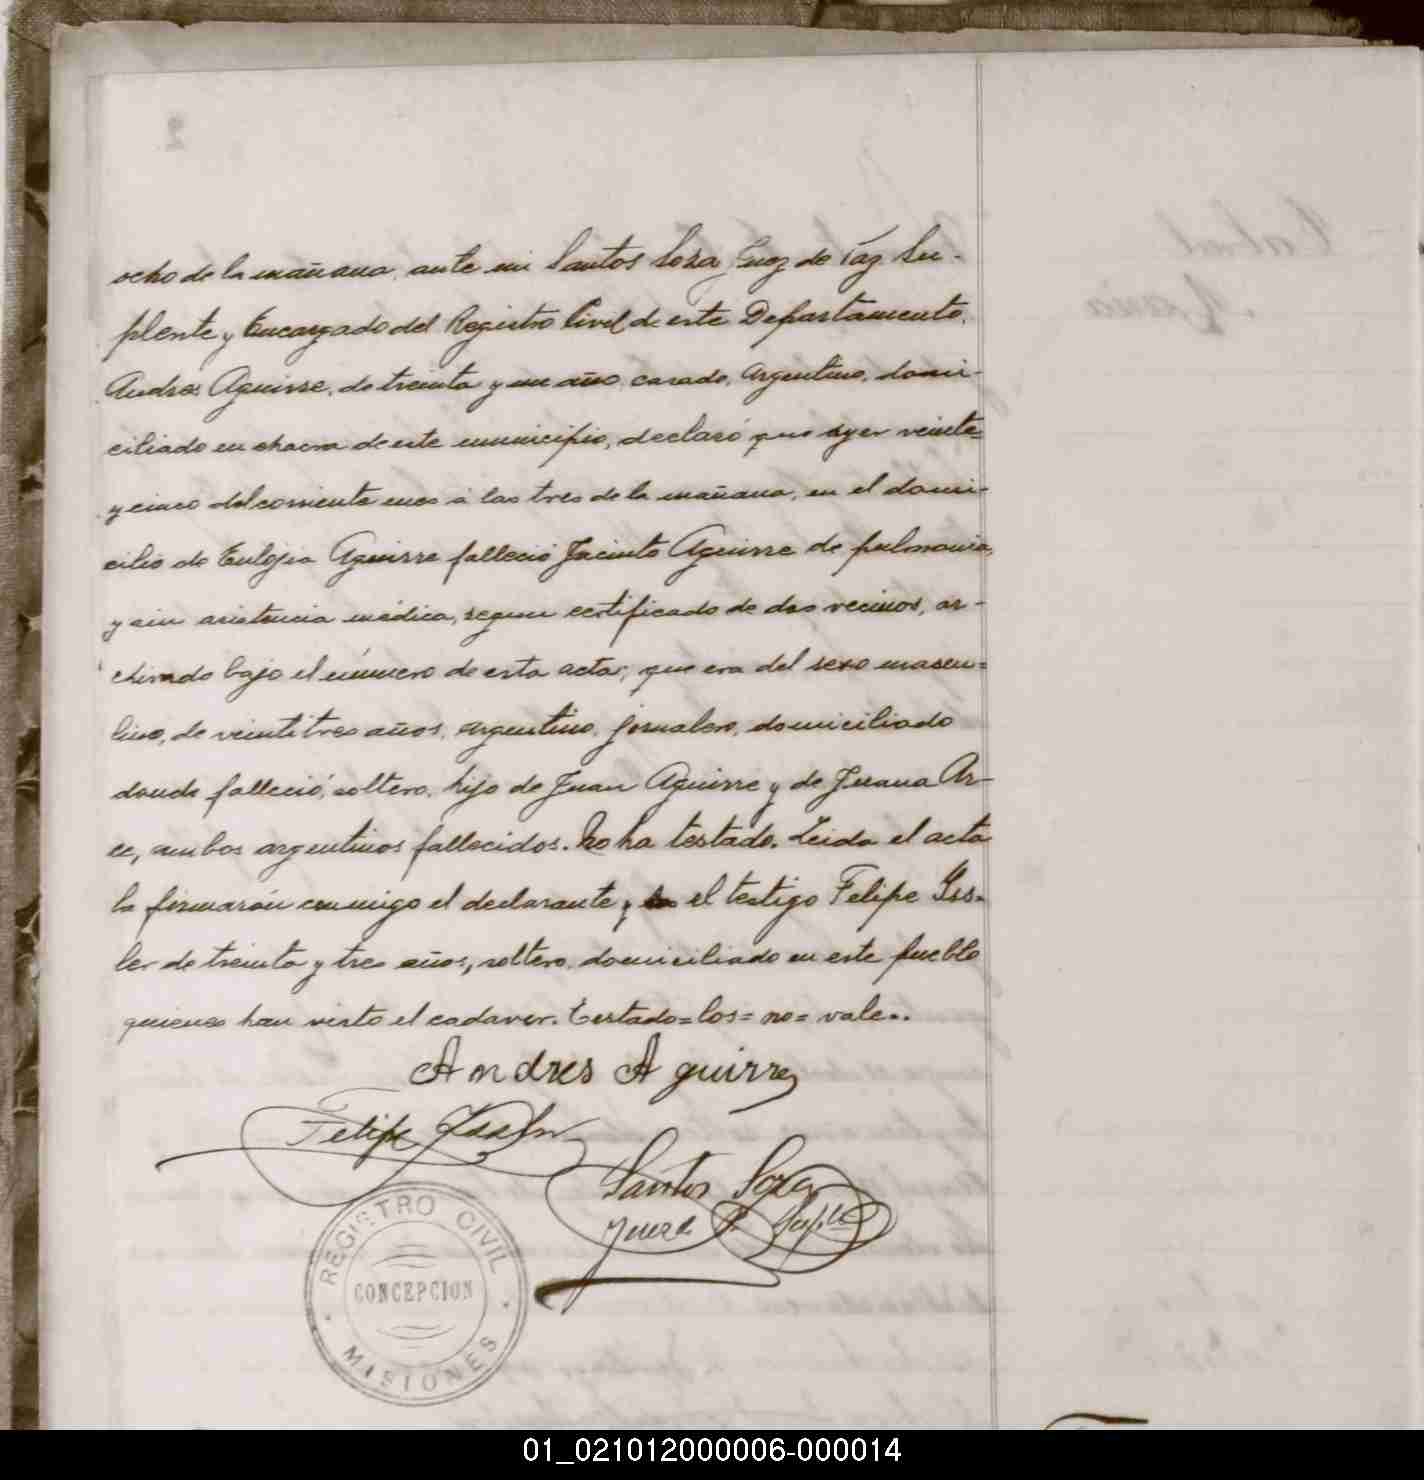 ocho de la mañana, ante mi Santos Soza Juez de Paz Su-
plente y Encargado del Registro Civil de este Departamento,
Andres Aguirre, de treinta y un año, casado, argentino, domi-
ciliado en chacra de este municipio, declaró que ayer veinte=
y cinco del corriente mes á las tres de la mañana, en el domi-
cilio de Eulojia Aguirre falleció Jacinto Aguirre de pulmonia,
y sin asistencia médica, segun certificado de dos vecinos, ar-
chivado bajo el número de esta acta; que era del sexo mascu=
lino, de veintitres años, argentino, jornalero, domiciliado
donde falleció, soltero, hijo de Juan Aguirre y de Juana Ar-
ce, ambos argentinos fallecidos. No ha testado. Leida el acta
la firmarón conmigo el declarante y los el testigo Felipe Jss-
ler de treinta y tres años, soltero, domiciliado en este pueblo
quienes han visto el cadaver. Testado=los=no=vale..
Andres Aguirre
Felipe Jssler
Santos Soza
Juez P. Suplte
REGISTRO CIVIL
CONCEPCION
MISIONES
01_021012000006-000014